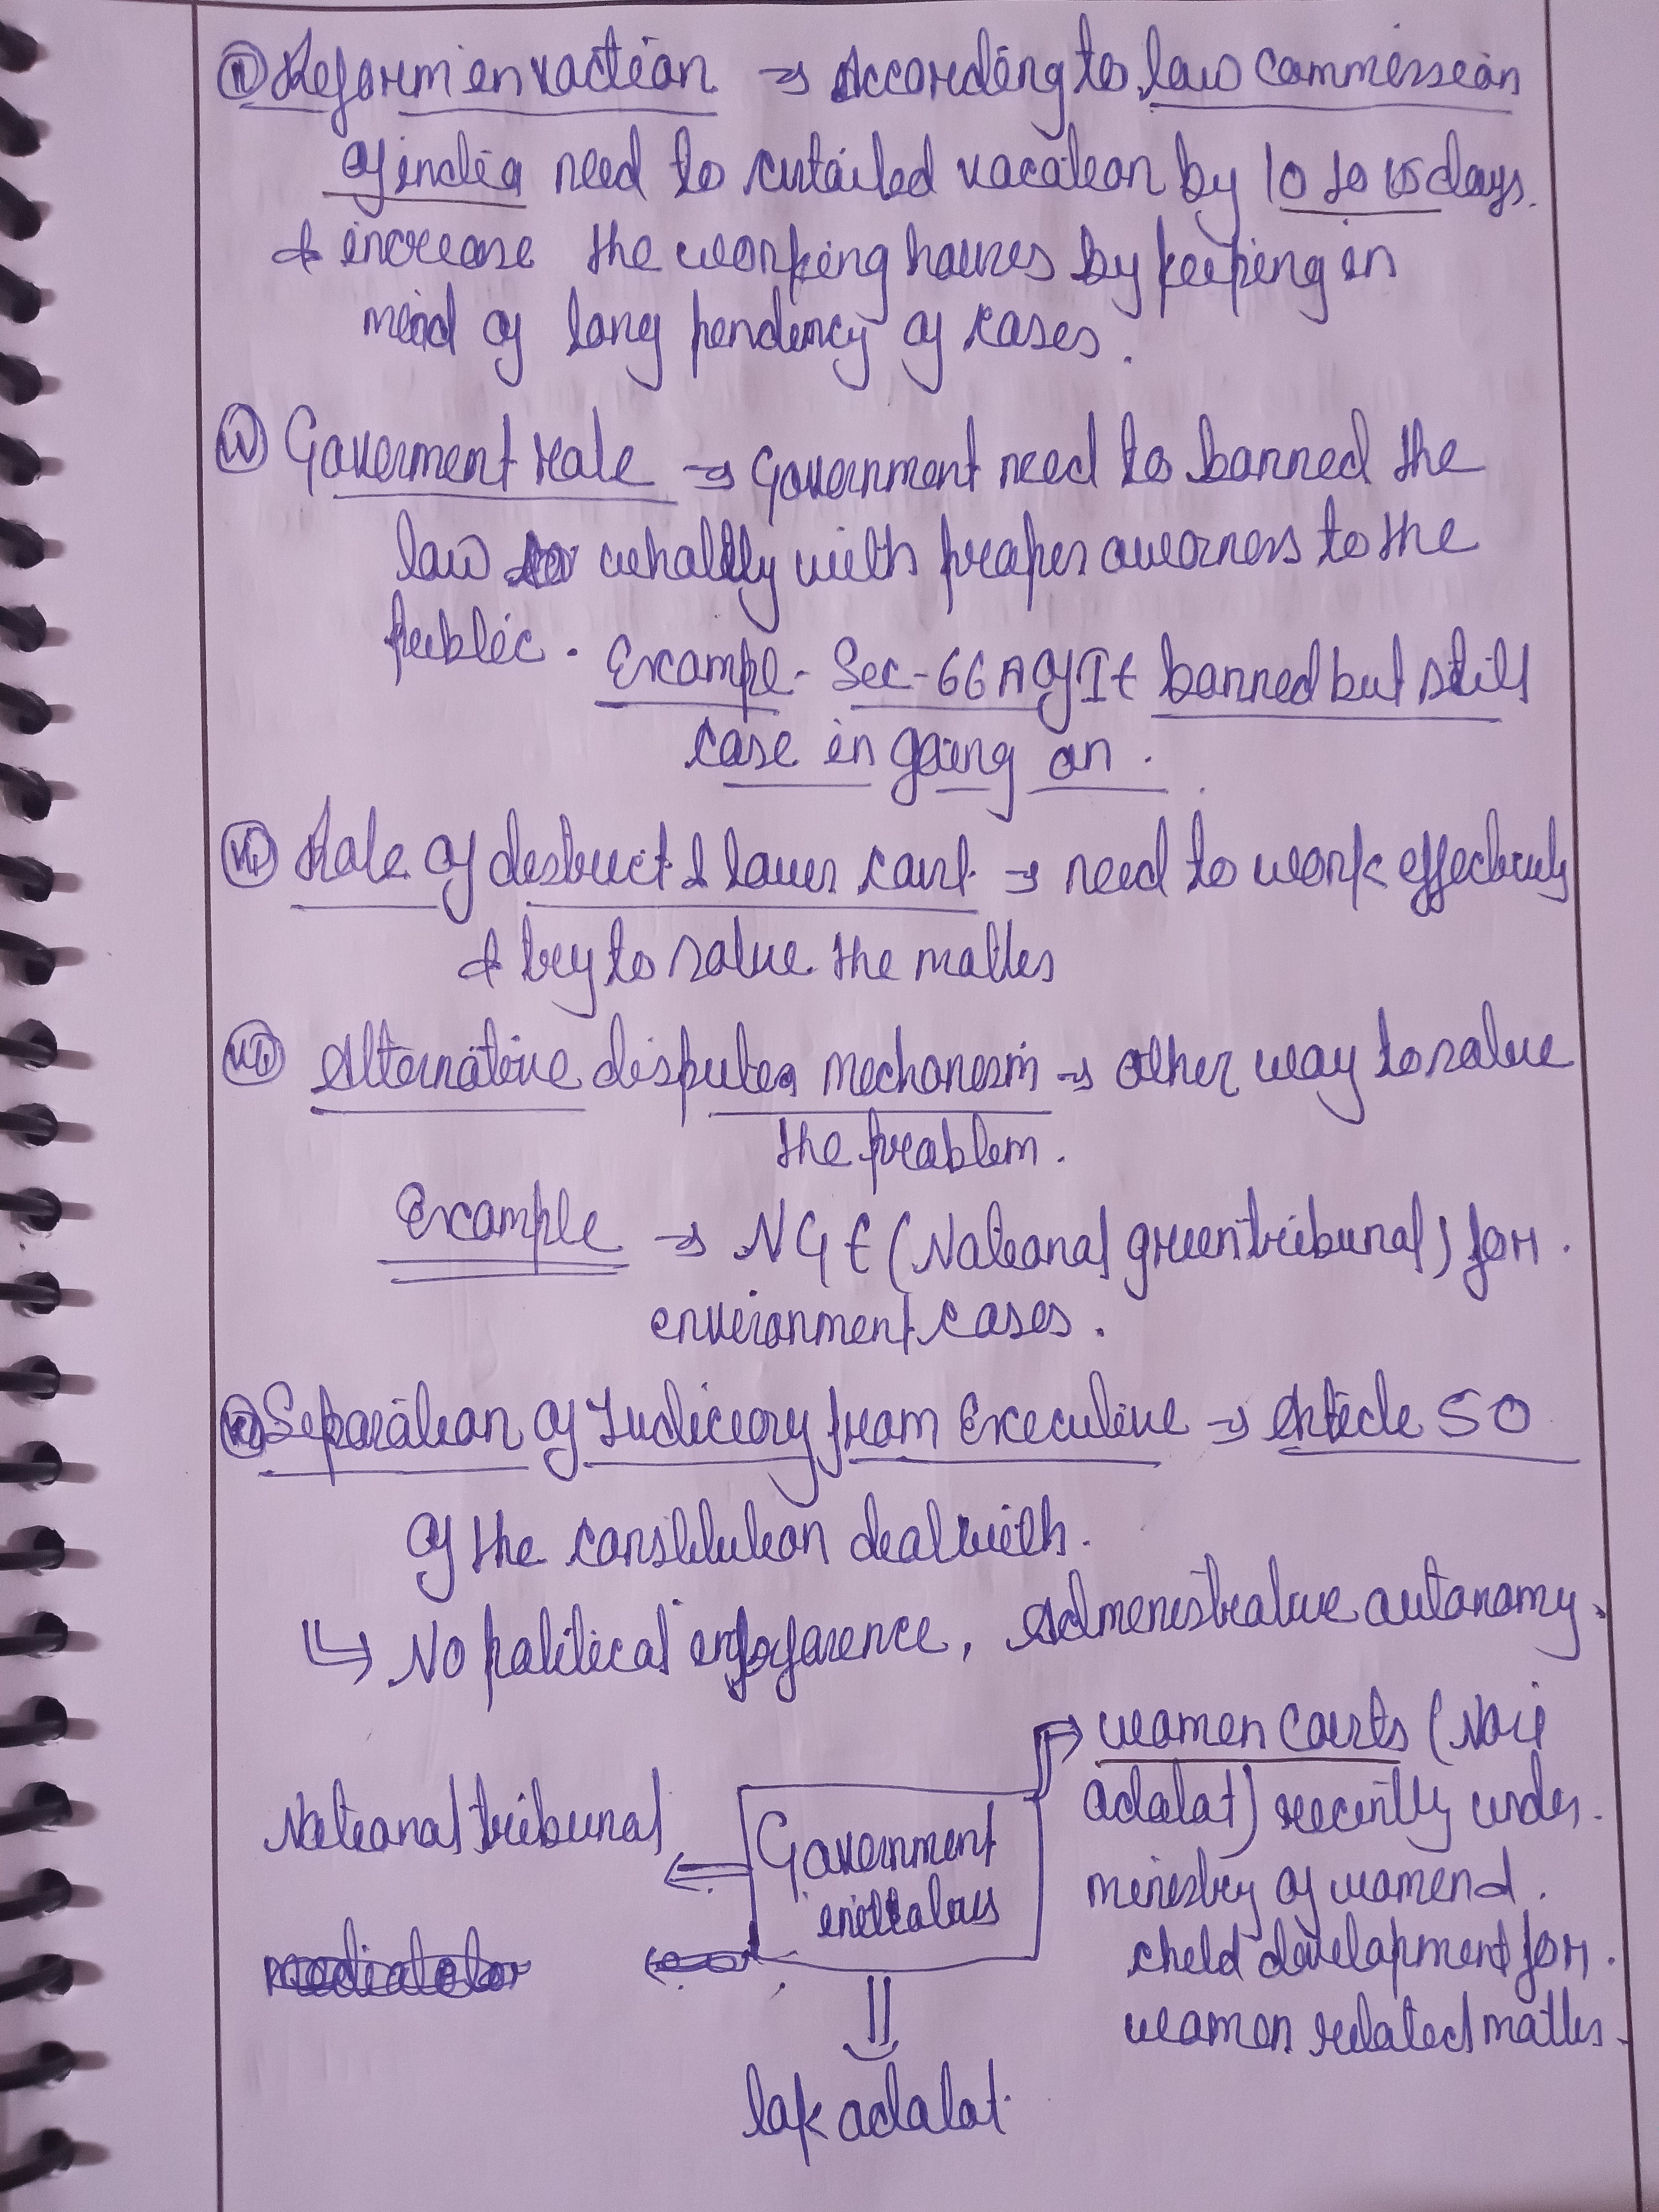 Reform en vaction → According to law commission
of india need to curtailed vacation by 10 to 15 days.
& increase the working hours by keeping in
mind of long pendency of cases.
Goverment role → Government need to banned the
law wholly with proper awarness to the
public. Exampe - Sec-66A of It banned but still
case in going on.
Role of district & lower court → need to work effectively
& try to solve the matter
Alternative dispute mechanesim → other way to solve
the problem.
Example → NGt (National green tribunal) for
environment cases.
Separation of Judiciary from Executive → Article 50
of the constitution deal with.
↳ No political , Administrative autonomy.
women Courts (Nari
Adalat) recently under
ministry of women &
child development for
women related matter
National tribunal
Government
lok adalat